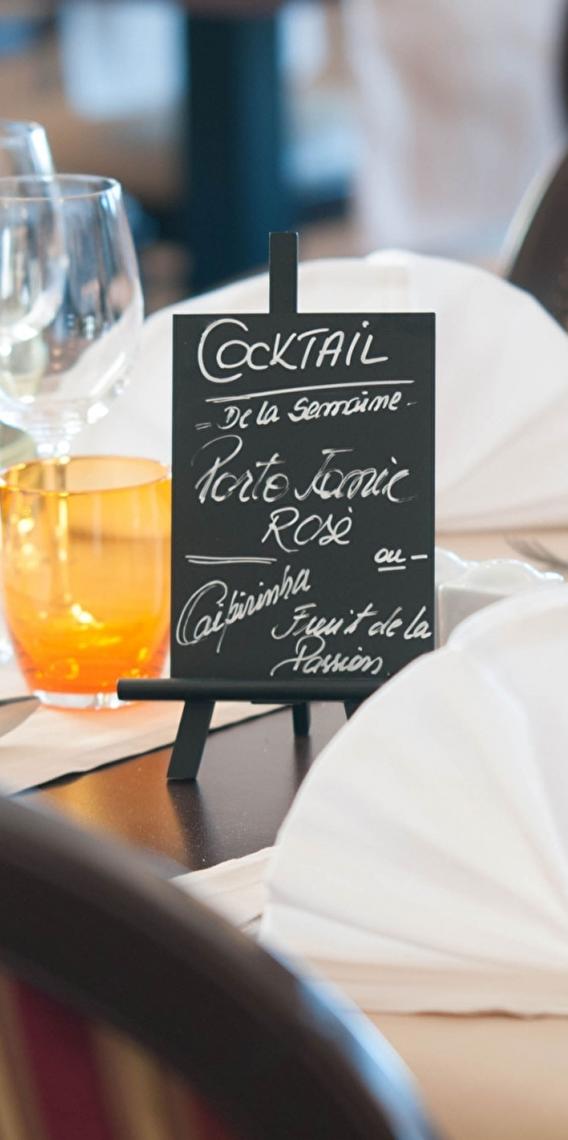 COCKTAIL
- De la Semaine -
Porto Tonic
Rosé
ou -
Caïpirinha
Fruit de la
Passion